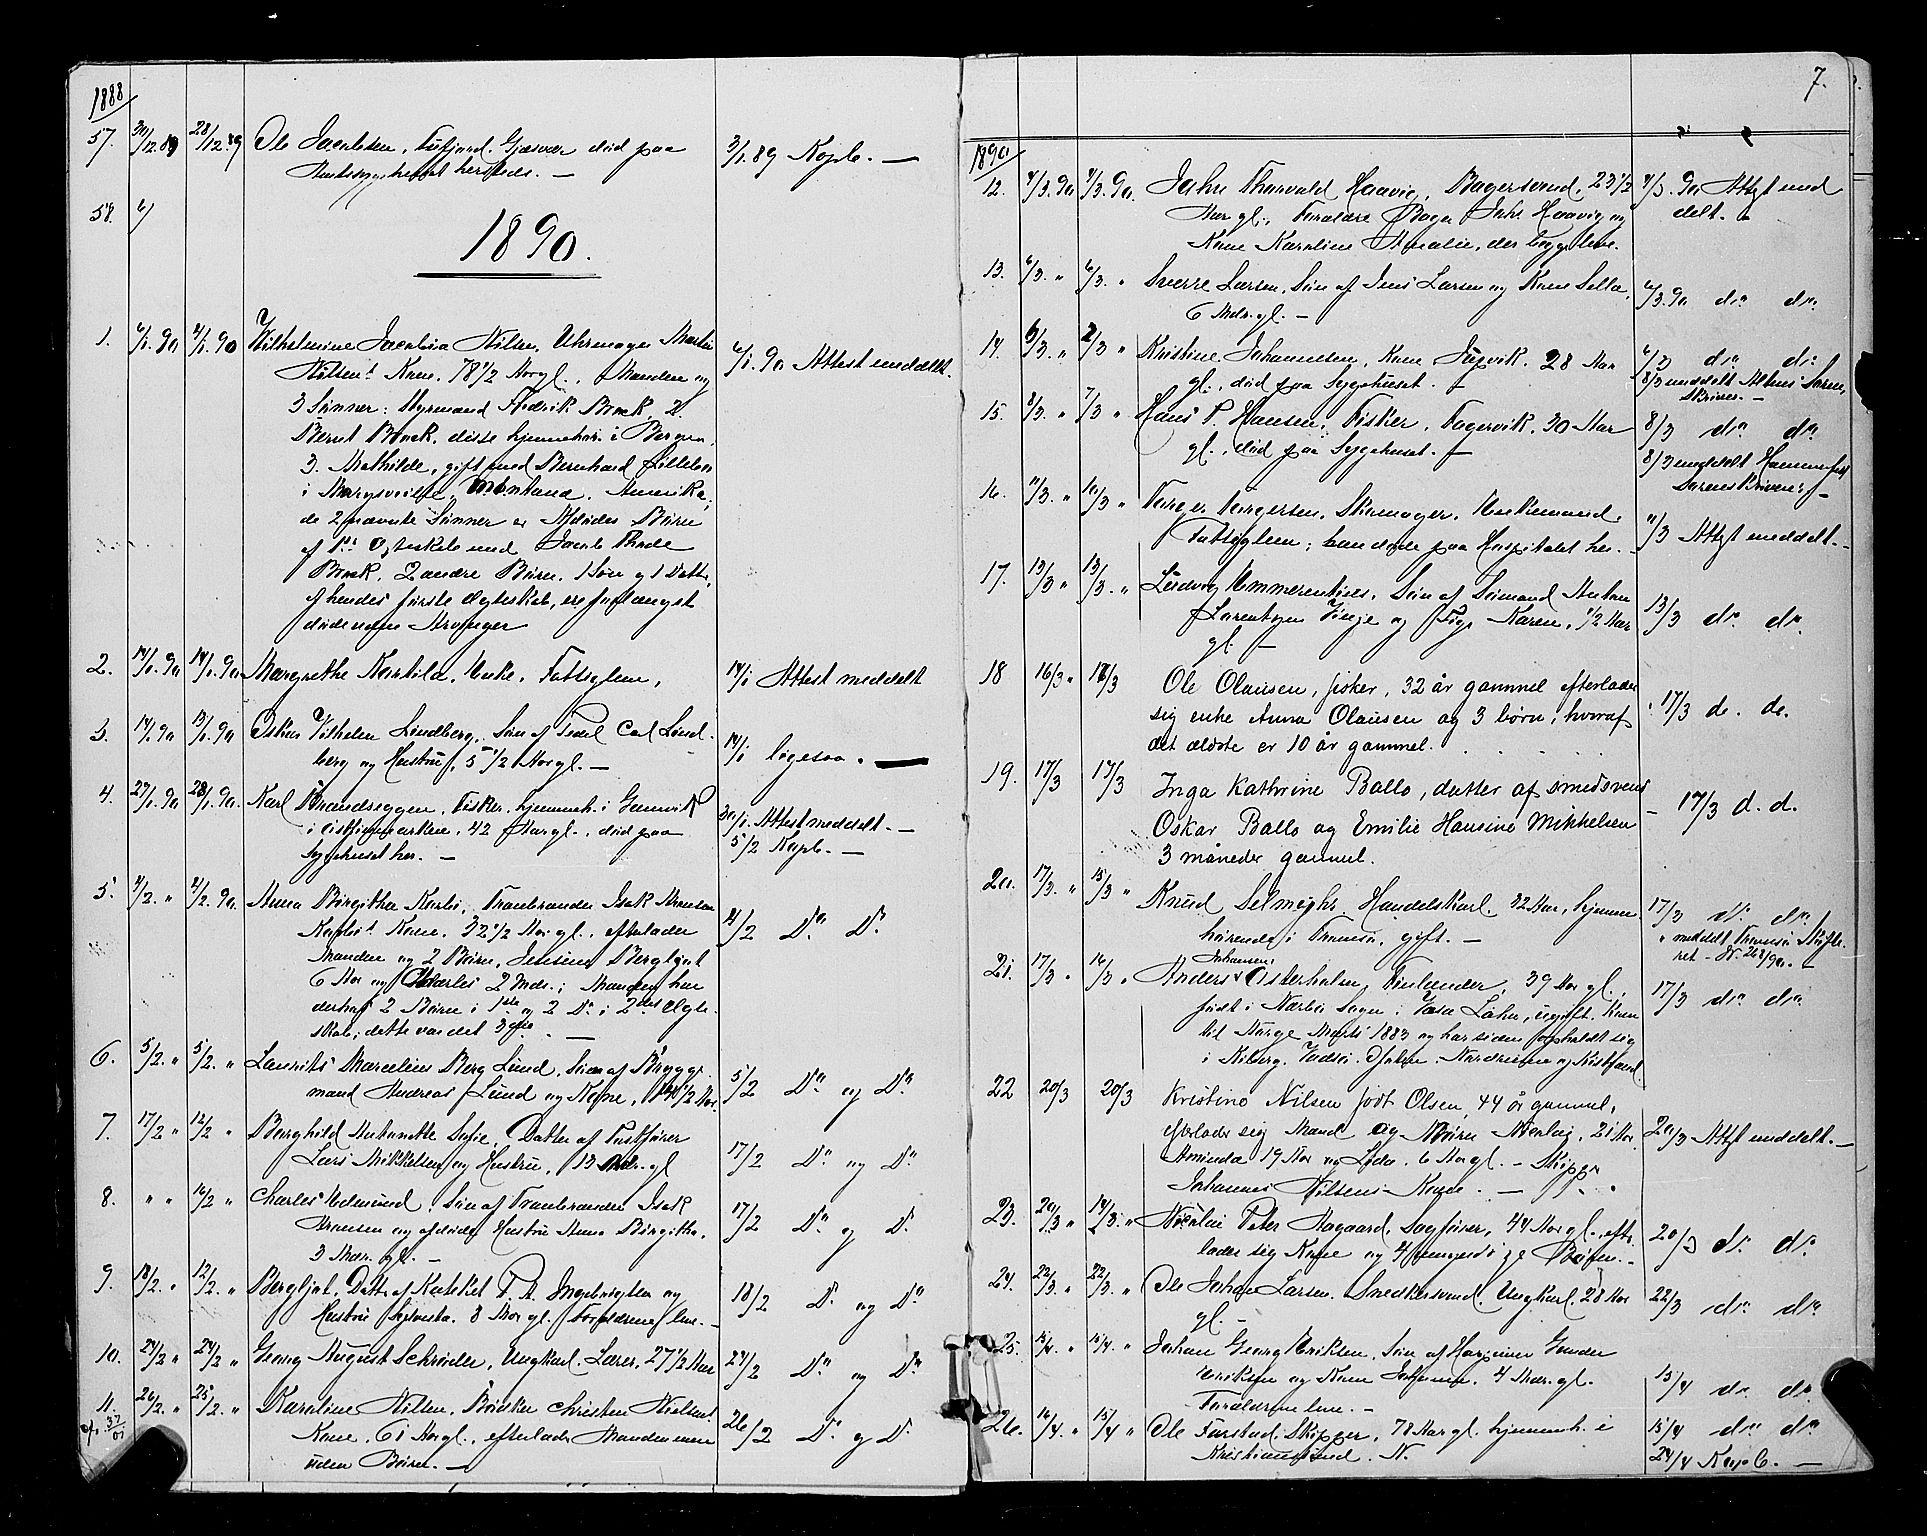 1888
57. 30/12.89 28/12.89 Ole Jacobsen, Tufjord. Gjæsvær død paa 3/1.89 Kopb. —
Amtssygehuset hersteds. —
58. 6/
1890.
1. 6/1.90 4/1.90 Wilhelmine Jacobia Nilsen, Uhrmager Martin 6/1.90 Attest meddelt.
Nilsens Kone, 78 1/2 Aar gl., Manden og
3 Sønner: Styrmand Fredrik Brock, 2.
Bernt Brock, disse hjemmehør. i Bergen,
3. Mathilde, gift med Bernhard
i Marysville, Montana, Amerika,
de 2 nævnte Sønner er Afdødes Børn
af 1ste Ægteskab med Jacob
Brock. 2 andre Børn, 1 Søn og 1 Datter,
af hendes første Ægteskab, ere forlængst
døde uden Arvinger
2. 14/1.90 14/1.90 Margrethe Karbila, Enke, Fattiglem, 14/1 Attest meddelt
3. 14/1.90 13/1.90 Oskar Vilhelm Lindberg, Søn af Carl Lind- 14/1 ligesaa. —
berg og Hustru, 5 1/2 Aar gl. —
4. 29/1.90 28/1.90. Karl Brandseggen, Fisker, hjemmeh. i Gamvik 30/1. Attest meddelt. —
i Østfinmarken, 42 Aar gl., død paa 5/2 Kopb. —
Sygehuset her. —
5. 4/2. " 4/2.90. Anna Birgitha Karlsø, Tranbrænder Isak Arnesen 4/2 Do. Do.
Kone, 32 1/2 Aar gl., efterlader
Manden og 2 Børn, Jensine Bergljot
6 Aar og Charles 2 Mdr.; Manden har
derhos 2 Børn i 1ste og 2 Do i 2det Ægte-
skab; dette var det 3die. —
6. 5/2. " 5/2. " Laurits Marcelius Berg Lund, Søn af Brygge- 5/2 Do. og Do.
mand Andreas Lund og Kone, 1/2 Aar.
7. 17/2 " 12/2 " Borghild Antonette Sofie, Datter af Postfører 17/2 Do. og Do.
Lars Mikkelsen og Hustru, 13 Mdr. gl
8. " " 16/2 " Charles Edmund, Søn af Tranbrænder Isak 17/2 Do. og D.
Arnesen og afdøde Hustru Anna Birgitha,
3 Mdr. gl. —
9. 18/2. " 12/2. " Bergljot, Datter af Kateket P. A. Ingebrigtsen og 18/2 D. og Do.
Hustru 8 Aar gl. Forældrene leve. —
10. 24/2 " 24/2 " Georg August Schrøder, Ungkarl, Lærer, 27 1/2 Aar 24/2 Do. og Do.
11. 26/2. " 25/2. " Karoline Nilsen, Bødker Christen Nielsens 26/2 Do. og D.
Kone, 61 Aar gl., efterlader Manden men
uden Børn. —
7.
1890
12. 4/3.90 4/3.90. Johs Thorvald Haavig, Bagersvend, 23 1/2 4/3. 90 Attest med
Aar gl., Forældre Bager Johs Haavig og delt. —
Kone Karoline Amalie, der begge leve.
13. 6/3. " 6/3. " Sverre Larsen, Søn af Jens Larsen og Kone 6/3.90 do. do.
6 Mdr. gl. —
14. 6/3. " 2/3 " Kristine Johannesen, Kone, 28 Aar 6/3 do. do.
gl., død paa Sygehuset. — 8/3 meddelt Altens Soren-
skriver. —
15. 8/3. " 7/3 " Hans P. Hansen, Fisker, Fagervik, 30 Aar 8/3 do. do.
gl., død paa Sygehuset. — 8/3 meddelt Hammerfest
Sorenskriveri. —
16. 11/3. " 10/3 " Torger Torgersen, Skomager, Enkemand 11/3 Attest meddelt. —
Fattiglem; han døde paa Hospitalet her. —
17. 13/3 " 13/3. " Ludvig Emmerentius, Søn af Sømand Anton 13/3 do. do.
Larentsen Vinje og Pige Karen, 1/2 Aar
gl. —
18 16/3 " 16/3 Ole Olausen, fisker, 32 år gammel efterlader 17/3 do. do.
sig enke Anna Olausen og 3 børn, hvoraf
det ældste er 10 år gammel.
19. 17/3 17/3 Inga Kathrine Ballo, datter af smedsvend — 17/3 d. d.
Oskar Ballo og Emilie Hansine Mikkelsen
3 måneder gammel.
20. 17/3. " 15/3 " Knud Selmighs Handelskarl. 32 Aar, hjemme- 17/3 do. do.
hørende i Tromsø, gift. — " meddelt Tromsø Skifte-
ret
21. 17/3 " 16/3 " Anders Johansen Østerholm, Finlænder, 39 Aar gl., 17/3 do. do.
født i Nærbø Sogn i Vasa Læhn, ugift. Kom
til Norge Marts 1883 og har siden opholdt sig
i Kiberg, Vadsø,
22 20/3 20/3 Kristine Nilsen født Olsen, 44 år gammel, 20/3 Attest meddelt. —
efterlader sig Mand og Børn Nicolai, 21 Aar
Aminda 19 Aar og Lydia 6 Aar gl. — Skipper
Johannes Nilsens Kone. —
23. 20/3 " 14/3. " Nicolai Peter Aagaard, Sagfører, 44 Aar gl., efter- 20/3 do. do.
lader sig Kone og 4 umyndige Børn. —
24. 22/3. " 22/3. " Ole Johan Larsen, Snedkersvend, Ungkarl, 28 Aar 22/3 do. do.
gl. —
25. 15/4. " 15/4. " Johan Georg Eriksen, Søn af 15/4 do. do.
Eriksen og Kone 4 Mdr. gl.
Forældrene leve. —
26. 16/4. " 15/4 " Ole Farstad, Skipper, 78 Aar gl. hjemmeh. i 15/4 do. do.
Kristiansund. N. 24/4 Kopb. —